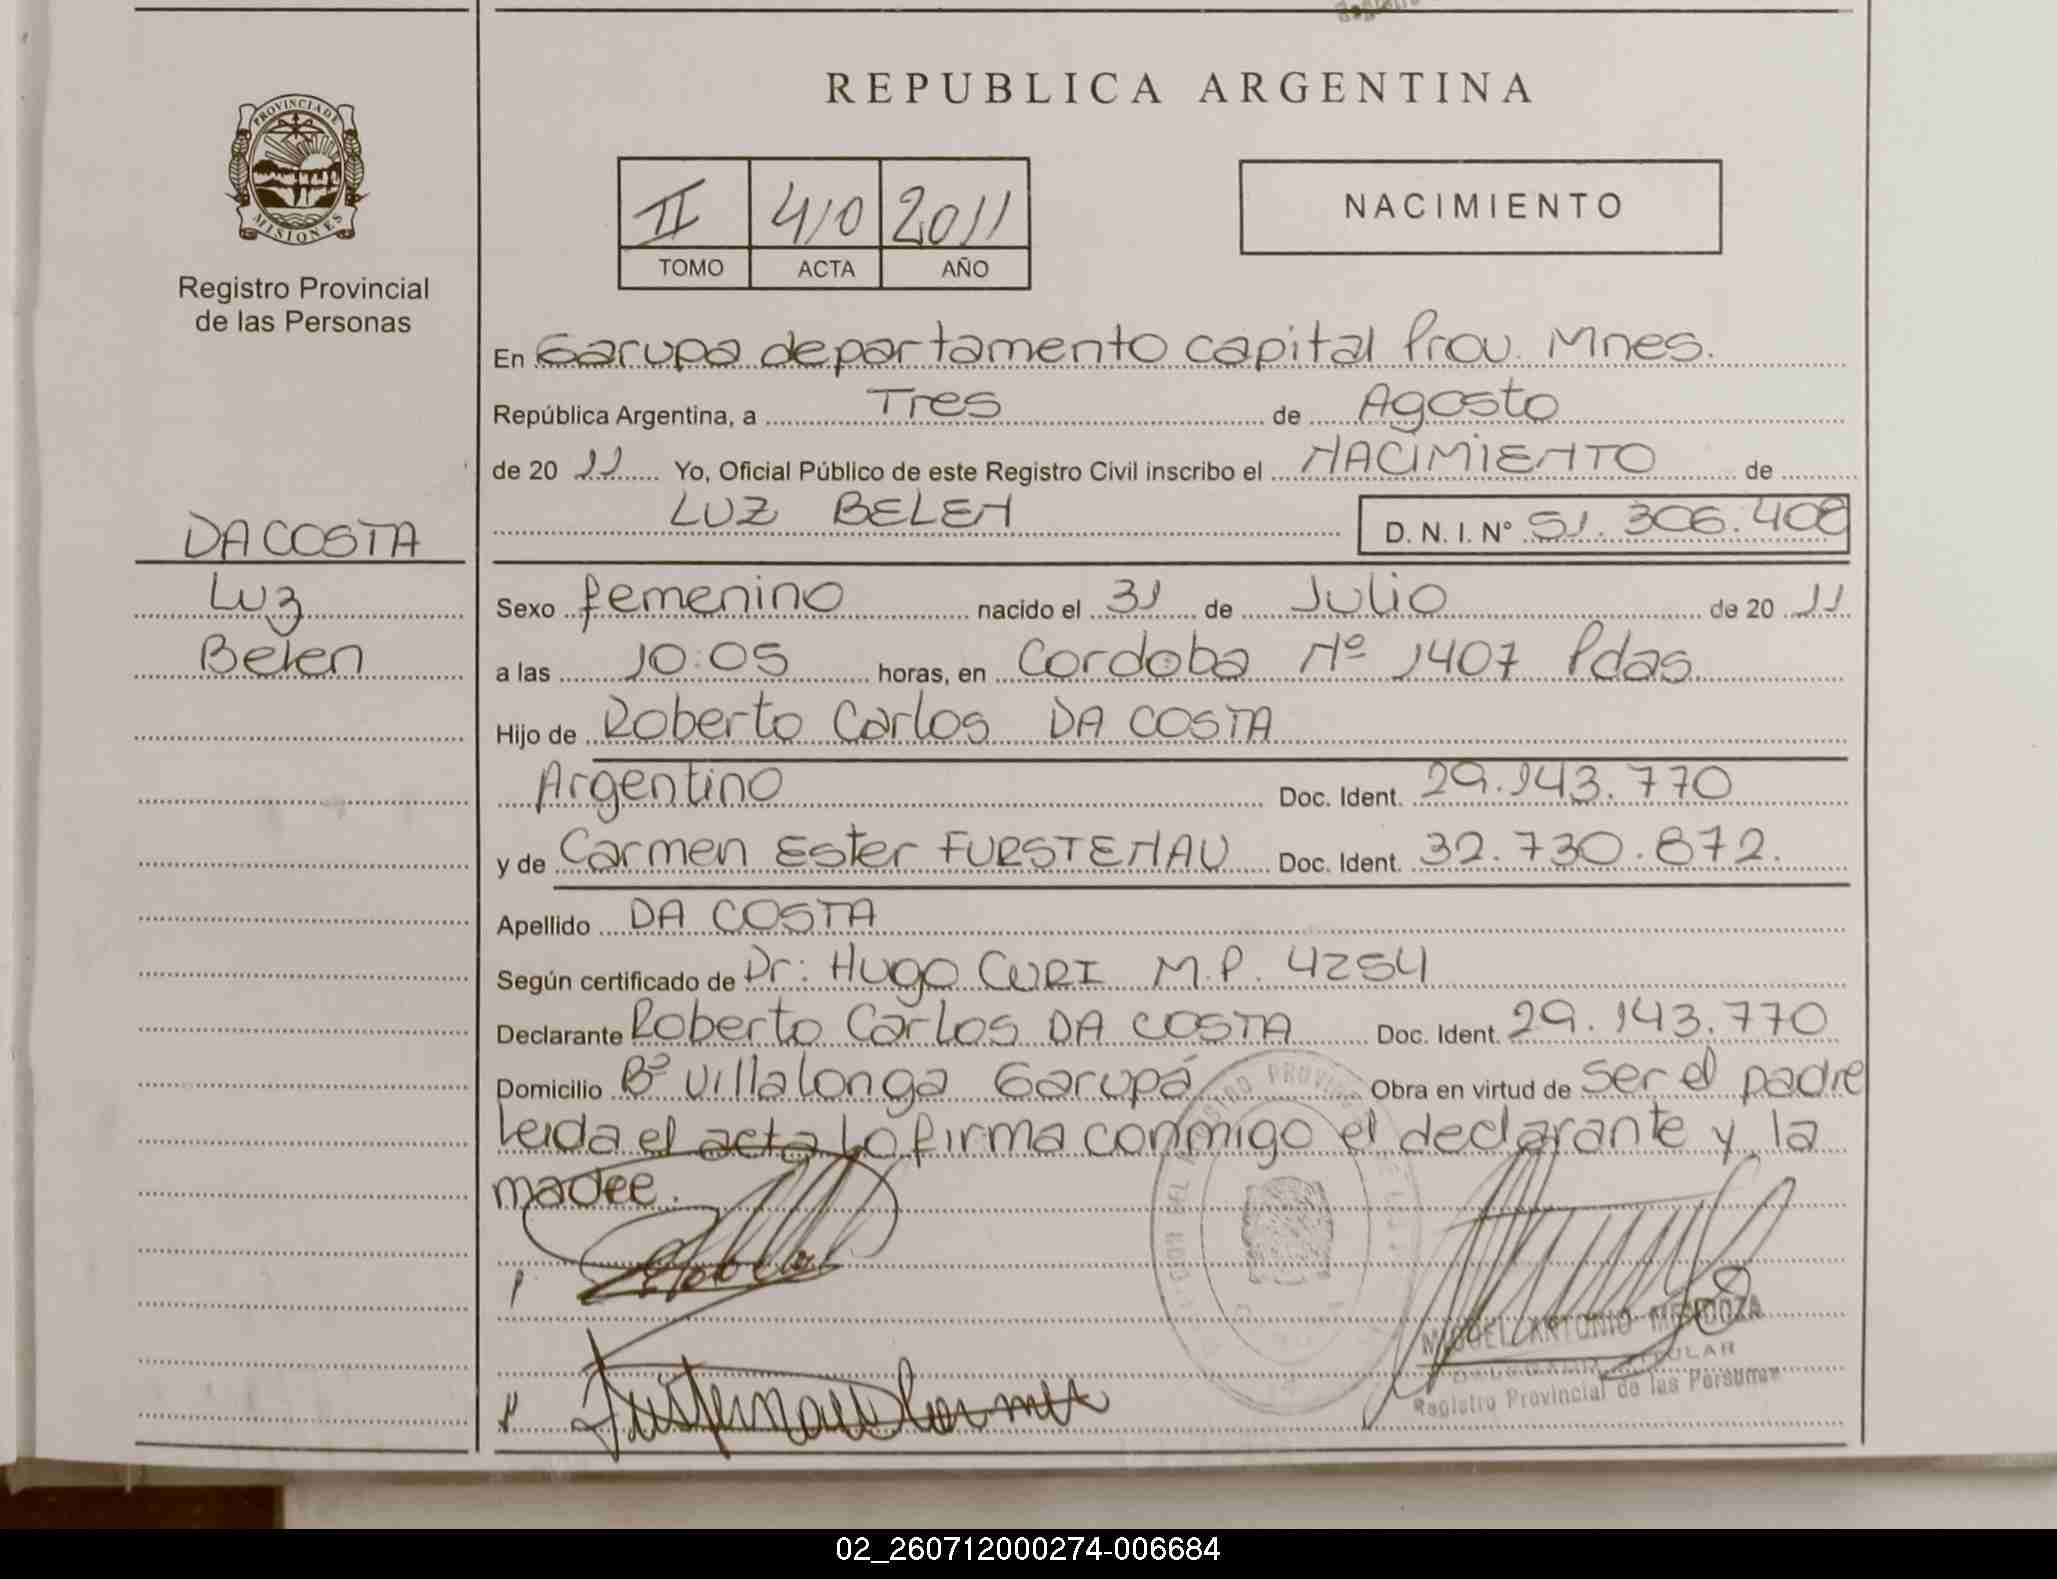 REPUBLICA ARGENTINA
PROVINCIA DE
MISIONES
Registro Provincial
de las Personas
II 410 2011
TOMO ACTA AÑO
NACIMIENTO
En Garupa departamento capital Prov. Mnes.
República Argentina, a Tres de Agosto
de 20 11 Yo, Oficial Público de este Registro Civil inscribo el NACIMIENTO de
LUZ BELEN D. N. I. N° 51.306.408
DA COSTA
Luz
Belen
Sexo femenino nacido el 31 de Julio de 20 11
a las 10:05 horas, en Cordoba Nº 1407 Pdas.
Hijo de Roberto Carlos DA COSTA
Argentino Doc. Ident. 29.143.770
y de Carmen Ester FURSTENAU Doc. Ident. 32.730.872.
Apellido DA COSTA
Según certificado de Dr: Hugo CURI M.P. 4254
Declarante Roberto Carlos DA COSTA Doc. Ident. 29.143.770
Domicilio Bº Villalonga Garupá Obra en virtud de ser el padre
Leida el acta lo firma conmigo el declarante y la
madre.
MIGUEL ANTONIO MENDOZA
TITULAR
Registro Provincial de las Personas
02_260712000274-006684